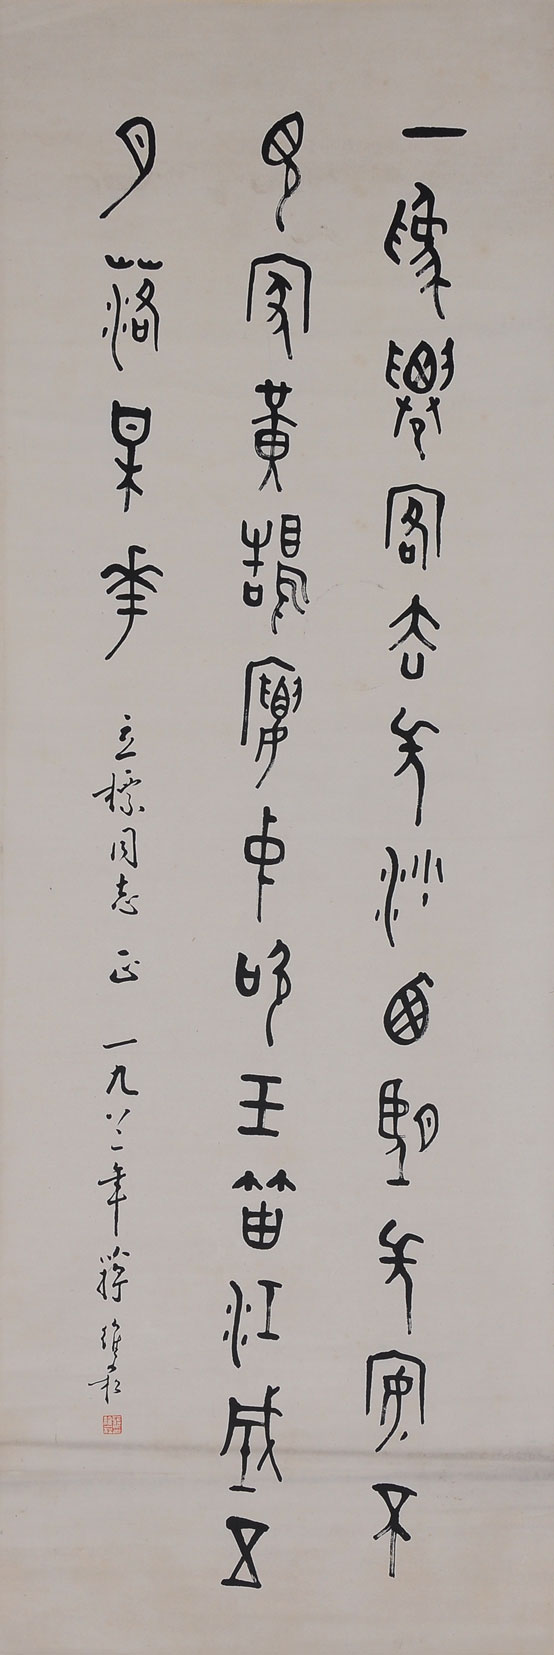 一為遷客去長沙西望長安不
見家黃鶴樓中吹玉笛江城五
月落梅花
立標同志正 一九八二年 蔣維崧